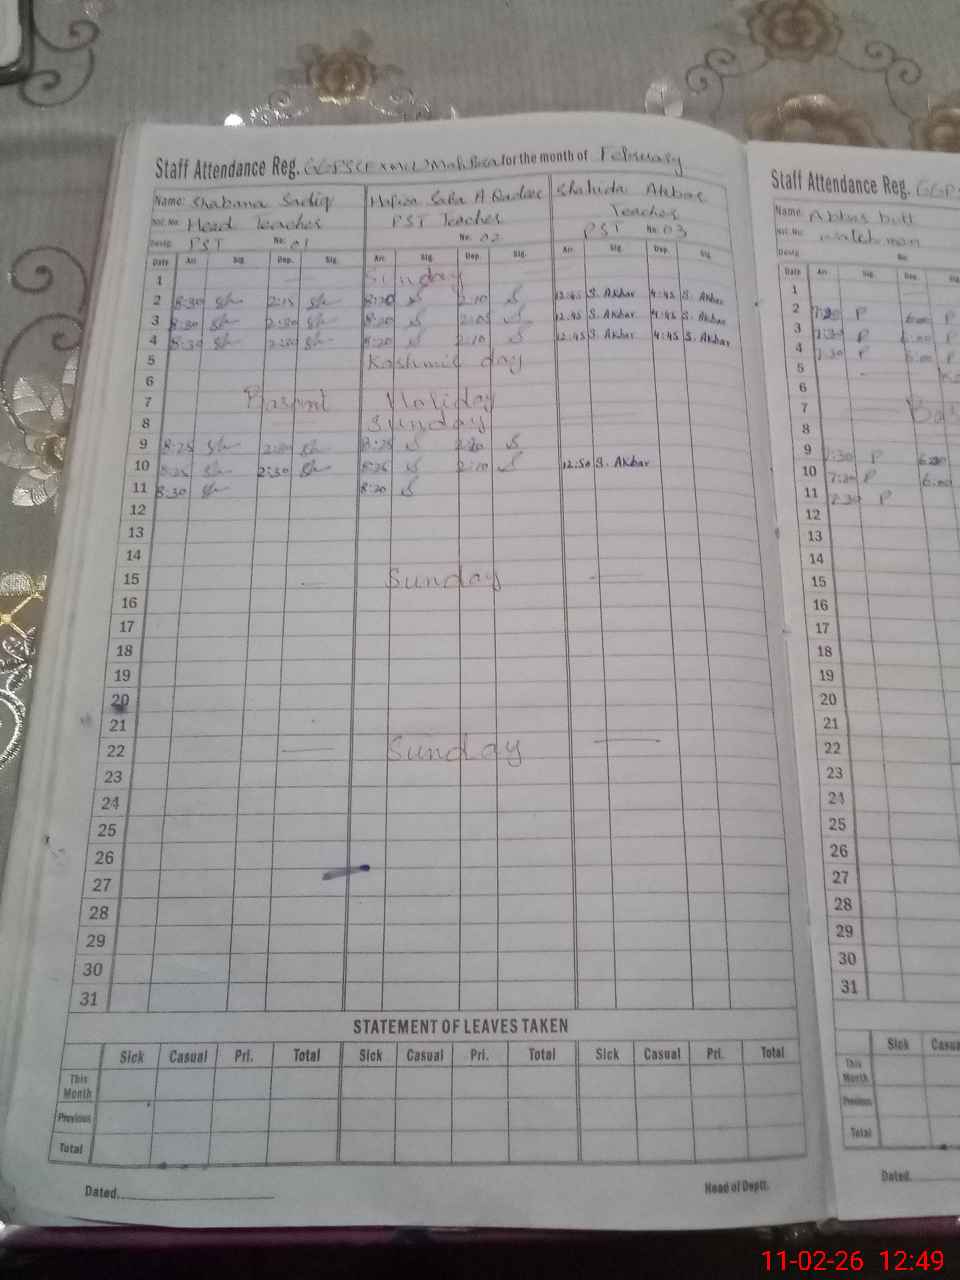 Staff Attendance Reg. for the month of February
Name: Shabana Sadiq
NIC.No: Head Teacher
Desig: PST No: 01
PST Teacher
No: 02
Shahida Akbar
Teacher
PST No: 03
Date Arr. Sig. Dep. Sig. Arr. Sig. Dep. Sig. Arr. Sig. Dep. Sig.
1 Sunday
2 8:30 8:20 2:10 12:45 S. Akbar 4:45 S. Akbar
3 8:30 2:30 8:20 2:05 12:45 S. Akbar 4:45 S. Akbar
4 8:30 8:20 2:10 12:45 S. Akbar 4:45 S. Akbar
5 Kashmir day
6
7 Basant Holiday
8 Sunday
9 8:25 8:25
10 8:25 2:30 8:25 2:10 12:50 S. Akbar
11 8:30 8:20
12
13
14
15 Sunday
16
17
18
19
20
21
22 Sunday
23
24
25
26
27
28
29
30
31
STATEMENT OF LEAVES TAKEN
Sick Casual Pri. Total Sick Casual Pri. Total Sick Casual Pri. Total
This Month
Previous
Total
Dated
Head of Deptt.
Staff Attendance Reg.
Name: Abbas butt
NIC.No:
Desig: No
Date Arr. Sig. Dep. Sig
1
2 7:30 P 6:00 P
3 7:30 P 6:00 P
4 7:30 P 6:00 P
5
6
7
8
9 7:30 P 6:00
10 7:30 P 6:00
11 7:30 P
12
13
14
15
16
17
18
19
20
21
22
23
24
25
26
27
28
29
30
31
Sick
This Month
Previous
Total
Dated
11-02-26 12:49